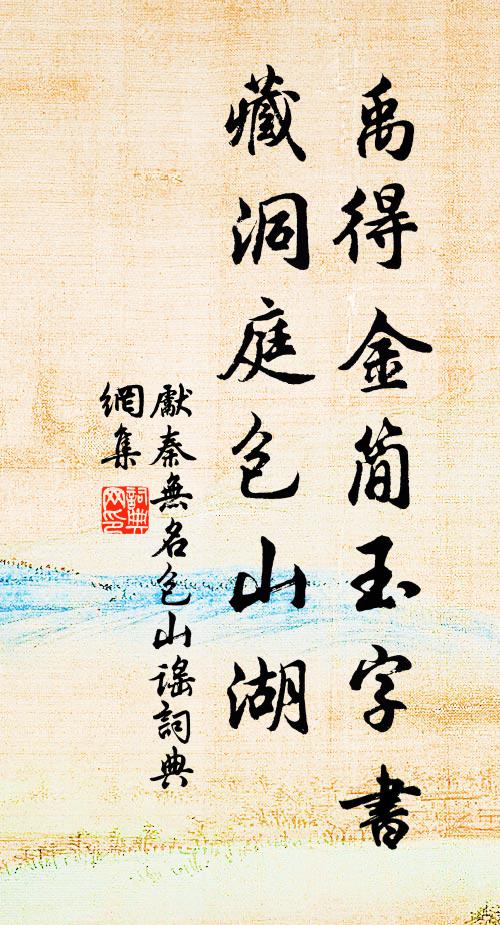 禹得金简玉字書
藏洞庭包山湖
獻秦無名包山謠詞典
網集
詞典
网印